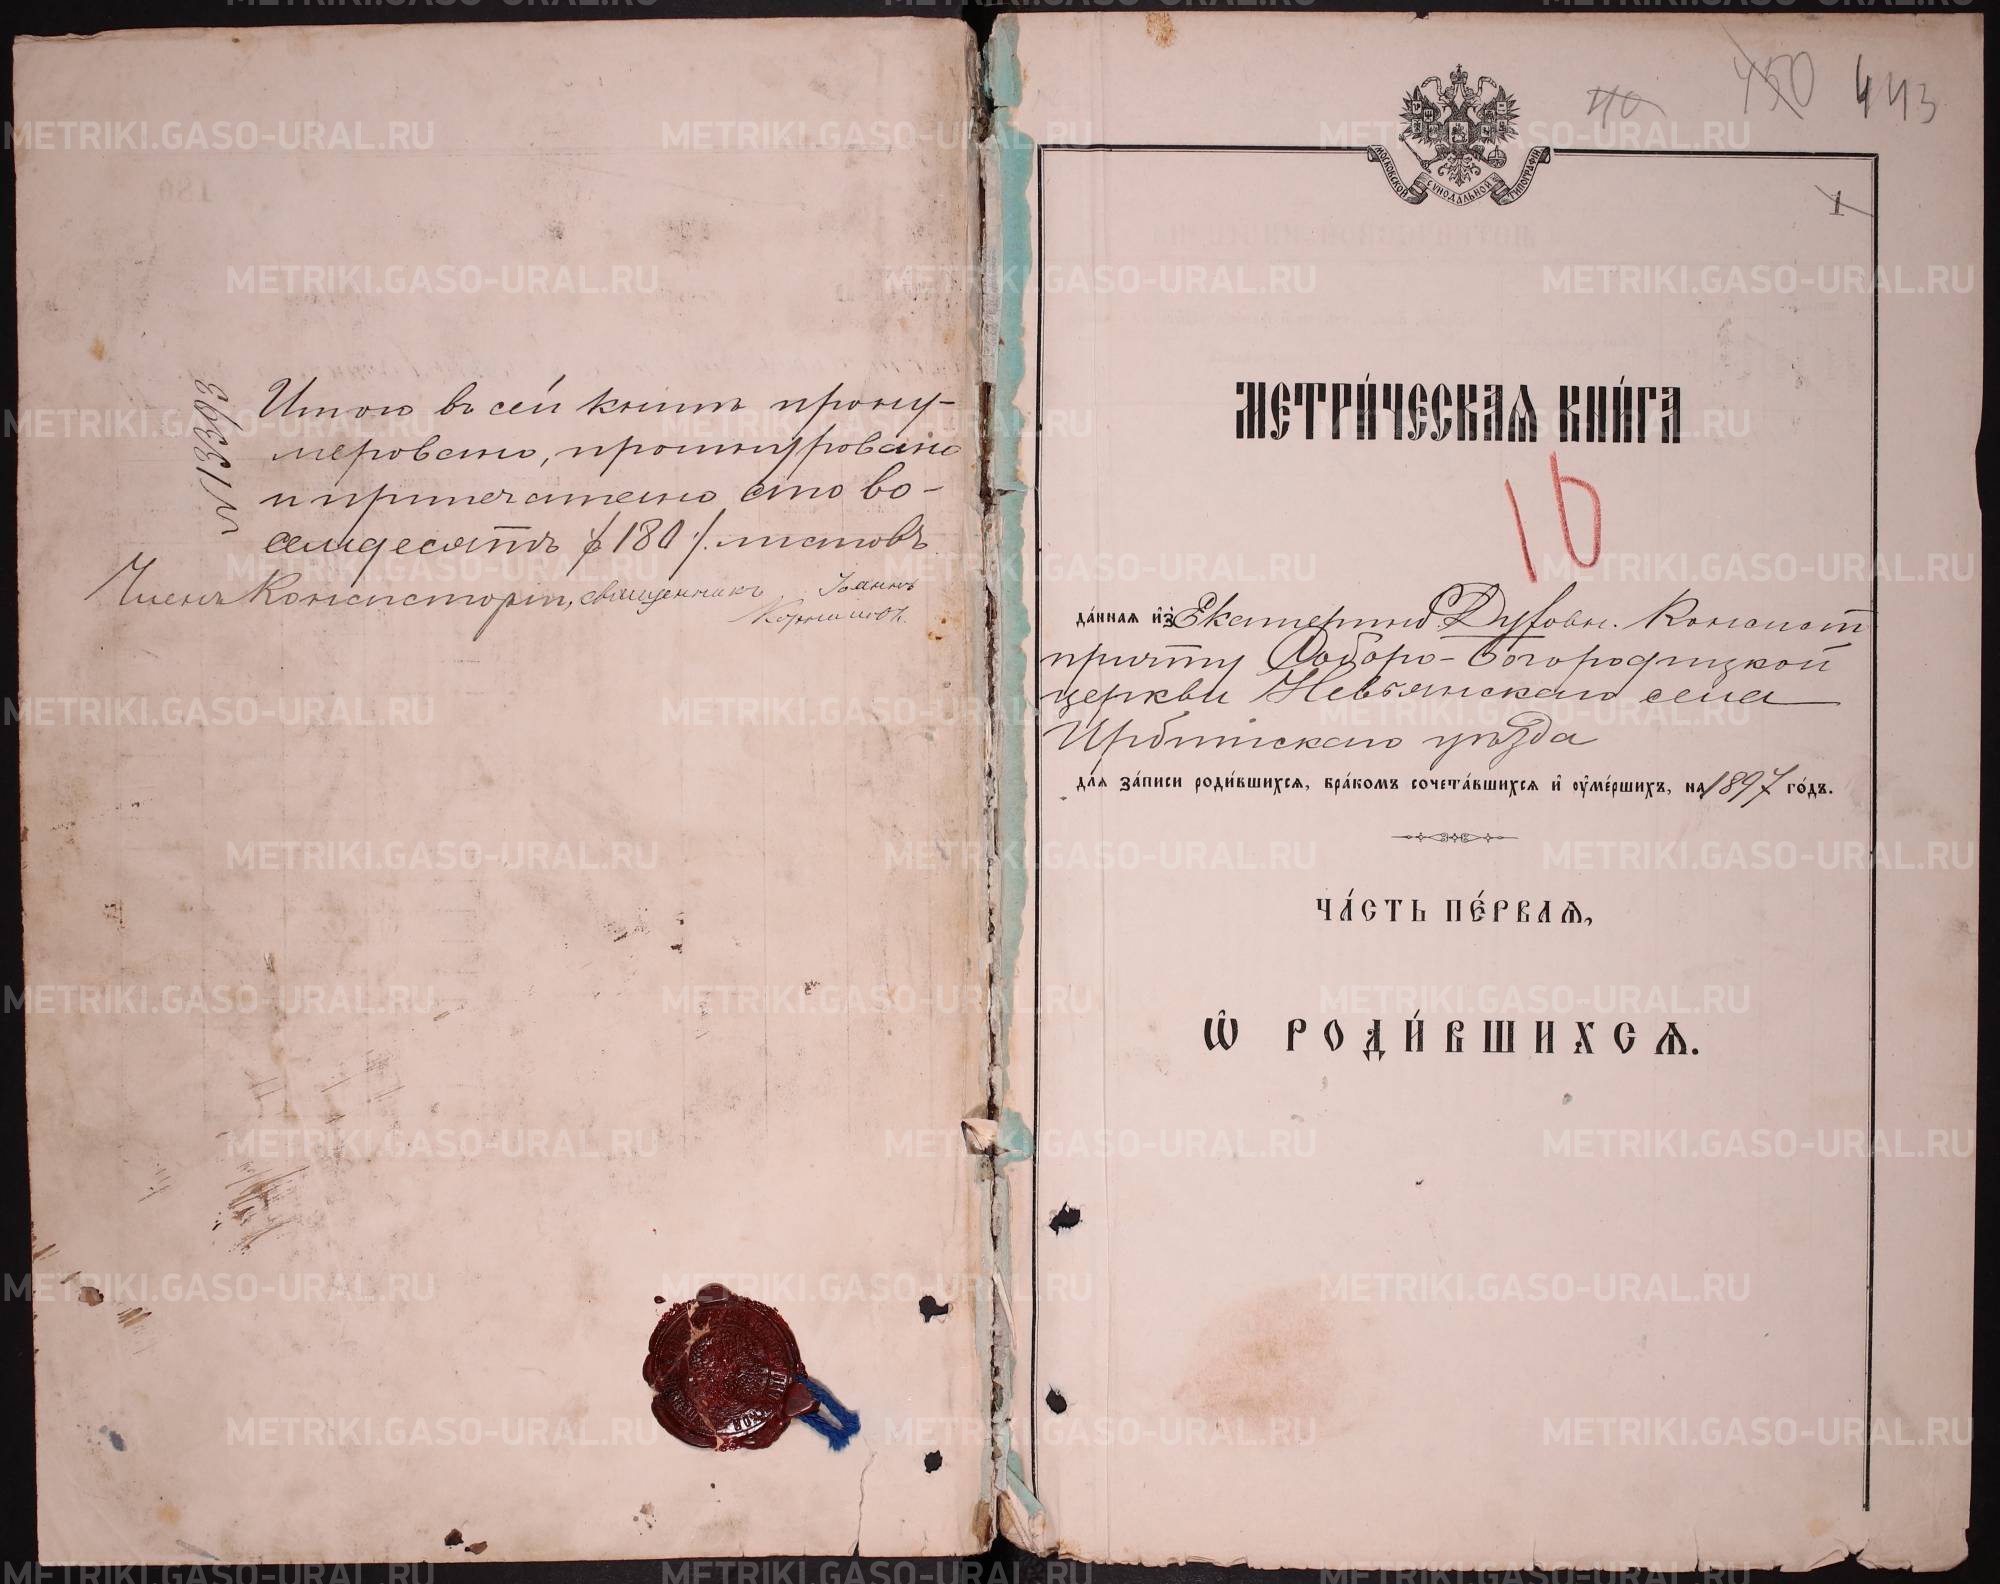 № 13393
Итого въ сей книгѣ прону-
меровано, прошнуровано
и припечатано сто во-
семьдесятъ /180/ листовъ
Членъ Консисторіи, священникъ Іоаннъ
Корниловъ.
40 450 443
МОСКОВСКОЙ СѴНОДАЛЬНОЙ ТИПОГРАФІИ
1
МЕТРИ́ЧЕСКАѦ КНИ́ГА
10
да́ннаѧ и҆з̾ Екатеринб Духовн. Консист
причту Соборо-Богородицкой
церкви Невьянскаго села
Ирбитскаго уѣзда
длѧ за́писи роди́вшихсѧ, бра́комъ сочета́вшихсѧ и҆ оу҆ме́ршихъ, на 1897 го́дъ.
ЧА́СТЬ ПЕ́РВАѦ,
Ѡ҆ РОДИ́ВШИХСѦ.
METRIKI.GASO-URAL.RU